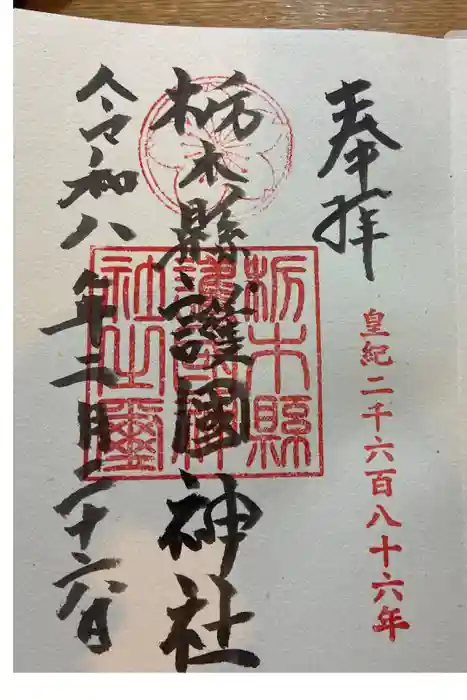 奉拝
皇紀二千六百八十六年
栃木縣護國神社
令和八年二月二十六日
栃木縣
護國神
社之璽